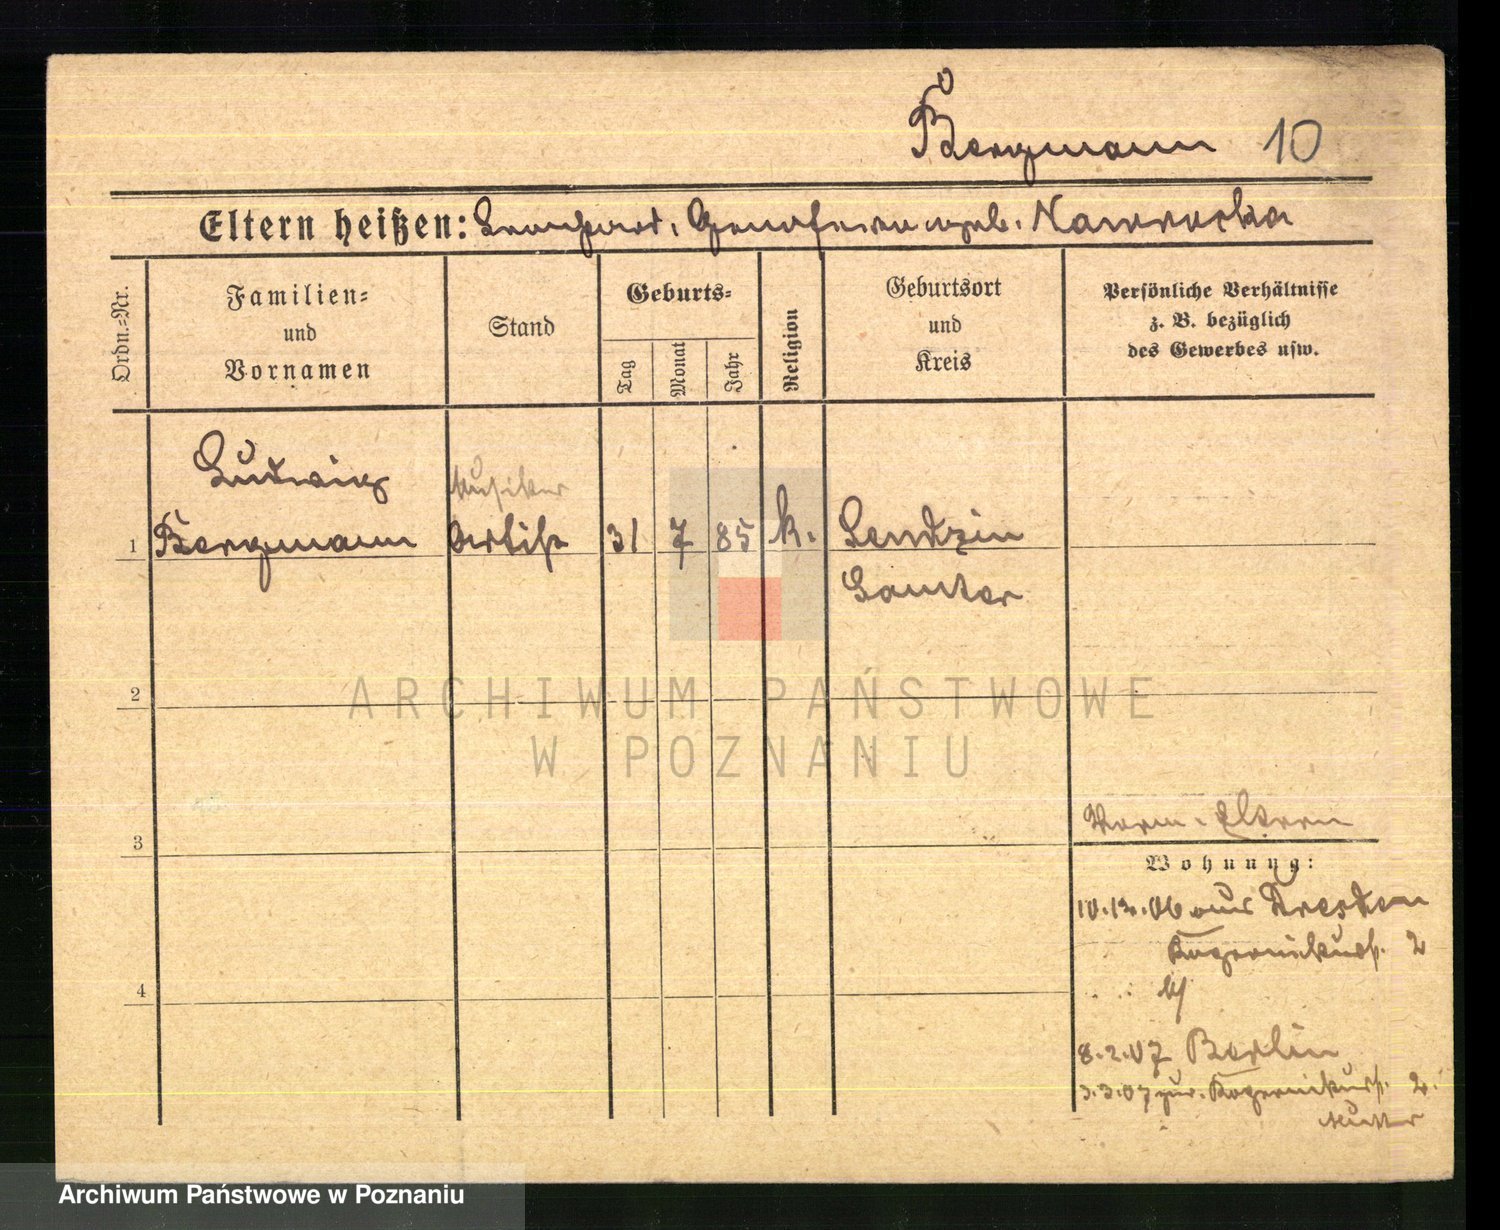 Bergmann 10
Eltern heißen: Leonhard, Genofeva geb. Nawrocka
Ordn.=Nr.
Familien=
und
Vornamen
Stand
Geburts=
Tag
Monat
Jahr
Religion
Geburtsort
und
Kreis
Persönliche Verhältnisse
z. B. bezüglich
des Gewerbes usw.
Ludwig
Musiker
1 Bergmann Artist 31 7 85 k. Sendzin
Samter
2
3
Eltern
Wohnung:
10.12.06 aus Dresden
Kopernikusstr. 2
4
8.2.07 Berlin
3.3.07 zur. Kopernikusstr. 2.
Mutter
ARCHIWUM PAŃSTWOWE
W POZNANIU
Archiwum Państwowe w Poznaniu